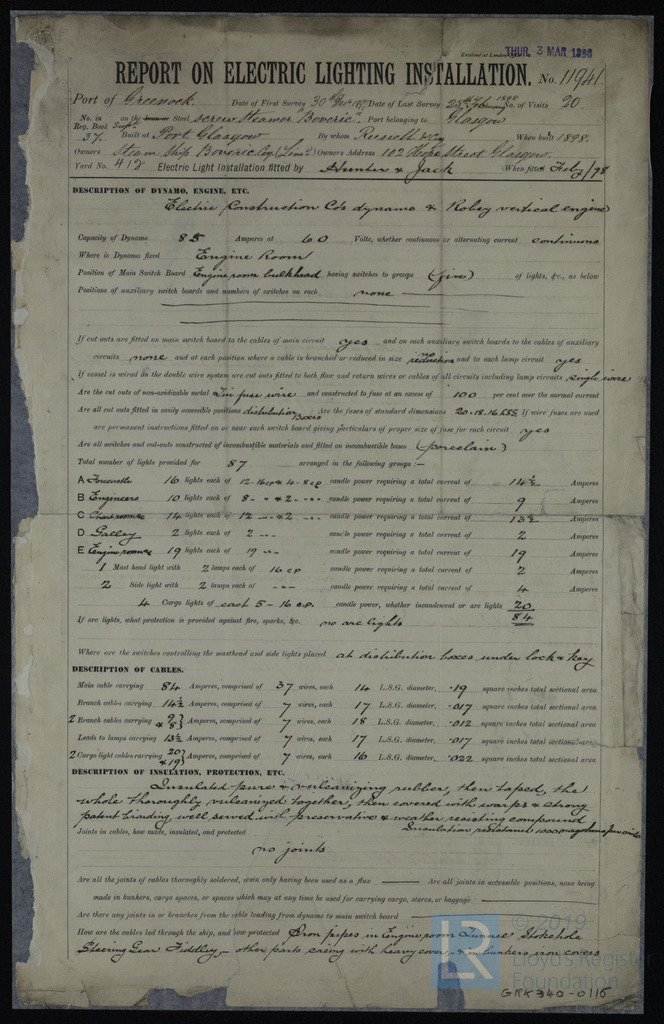 Received at London Office
THUR. 3 MAR 1898
REPORT ON ELECTRIC LIGHTING INSTALLATION. No. 11941
Port of Greenock Date of First Survey 30 Date of Last Survey 25 1898 No. of Visits 20
No. in Reg. Book 37 on the Steel Screw Steamer "Boveric" Port belonging to Glasgow
Built at Port Glasgow By whom Russell & Co When built 1898.
Owners Steam Ship Boveric Coy (Lim'd) Owners Address 102 Hope Street Glasgow
Yard No. 412 Electric Light Installation fitted by Hunter & Jack When fitted Feby/98
DESCRIPTION OF DYNAMO, ENGINE, ETC.
Electric Construction Co's dynamo & Robey vertical engine
Capacity of Dynamo 85 Amperes at 60 Volts, whether continuous or alternating current continuous
Where is Dynamo fixed Engine Room
Position of Main Switch Board Engine room bulkhead having switches to groups (five) of lights, &c., as below
Positions of auxiliary switch boards and numbers of switches on each none
If cut outs are fitted on main switch board to the cables of main circuit yes and on each auxiliary switch boards to the cables of auxiliary
circuits none and at each position where a cable is branched or reduced in size no reduction and to each lamp circuit yes
If vessel is wired on the double wire system are cut outs fitted to both flow and return wires or cables of all circuits including lamp circuits single wire
Are the cut outs of non-oxidizable metal Tin fuse wire and constructed to fuse at an excess of 100 per cent over the normal current
Are all cut outs fitted in easily accessible positions distribution Boxes Are the fuses of standard dimensions 20.18.16 If wire fuses are used
are permanent instructions fitted on or near each switch board giving particulars of proper size of fuse for each circuit yes
Are all switches and cut-outs constructed of incombustible materials and fitted on incombustible bases (porcelain)
Total number of lights provided for 87 arranged in the following groups :—
A Forecastle 16 lights each of 12-16cp & 4-8cp candle power requiring a total current of 14½ Amperes
B Engineers 10 lights each of 8- " & 2- " candle power requiring a total current of 9 Amperes
C 14 lights each of 12 " & 2 " candle power requiring a total current of 13½ Amperes
D Galley 2 lights each of 2 " candle power requiring a total current of 2 Amperes
E Engine room &c 19 lights each of 19 " candle power requiring a total current of 19 Amperes
1 Mast head light with 2 lamps each of 16 cp candle power requiring a total current of 2 Amperes
2 Side light with 2 lamps each of " candle power requiring a total current of 4 Amperes
4 Cargo lights of each 5 - 16 c.p. candle power, whether incandescent or arc lights 20
84
If arc lights, what protection is provided against fire, sparks, &c. no arc lights
Where are the switches controlling the masthead and side lights placed at distribution boxes under lock & key
DESCRIPTION OF CABLES.
Main cable carrying 84 Amperes, comprised of 37 wires, each 14 L.S.G. diameter, .19 square inches total sectional area
Branch cables carrying 14½ Amperes, comprised of 7 wires, each 17 L.S.G. diameter, .017 square inches total sectional area
2 Branch cables carrying 9 & 8 Amperes, comprised of 7 wires, each 18 L.S.G. diameter, .012 square inches total sectional area
Leads to lamps carrying 13½ Amperes, comprised of 7 wires, each 17 L.S.G. diameter, .017 square inches total sectional area
2 Cargo light cables carrying 20 & 19 Amperes, comprised of 7 wires, each 16 L.S.G. diameter, .022 square inches total sectional area
DESCRIPTION OF INSULATION, PROTECTION, ETC.
Insulated pure & vulcanizing rubber, then taped, the
whole thoroughly vulcanized together, then covered with warps & strong
patent braiding, well served with preservative & weather resisting compound
Insulation resistance 1000 megohms per mile
Joints in cables, how made, insulated, and protected
no joints
Are all the joints of cables thoroughly soldered, resin only having been used as a flux — Are all joints in accessible positions, none being
made in bunkers, cargo spaces, or spaces which may at any time be used for carrying cargo, stores, or baggage —
Are there any joints in or branches from the cable leading from dynamo to main switch board —
How are the cables led through the ship, and how protected Iron pipes in Engine room Tunnel Stokehole
Steering Gear Fiddley, — other parts casing with heavy cover, & in bunkers iron covers
LR
© 2019
Lloyd's Register
Foundation
GRK340-0116